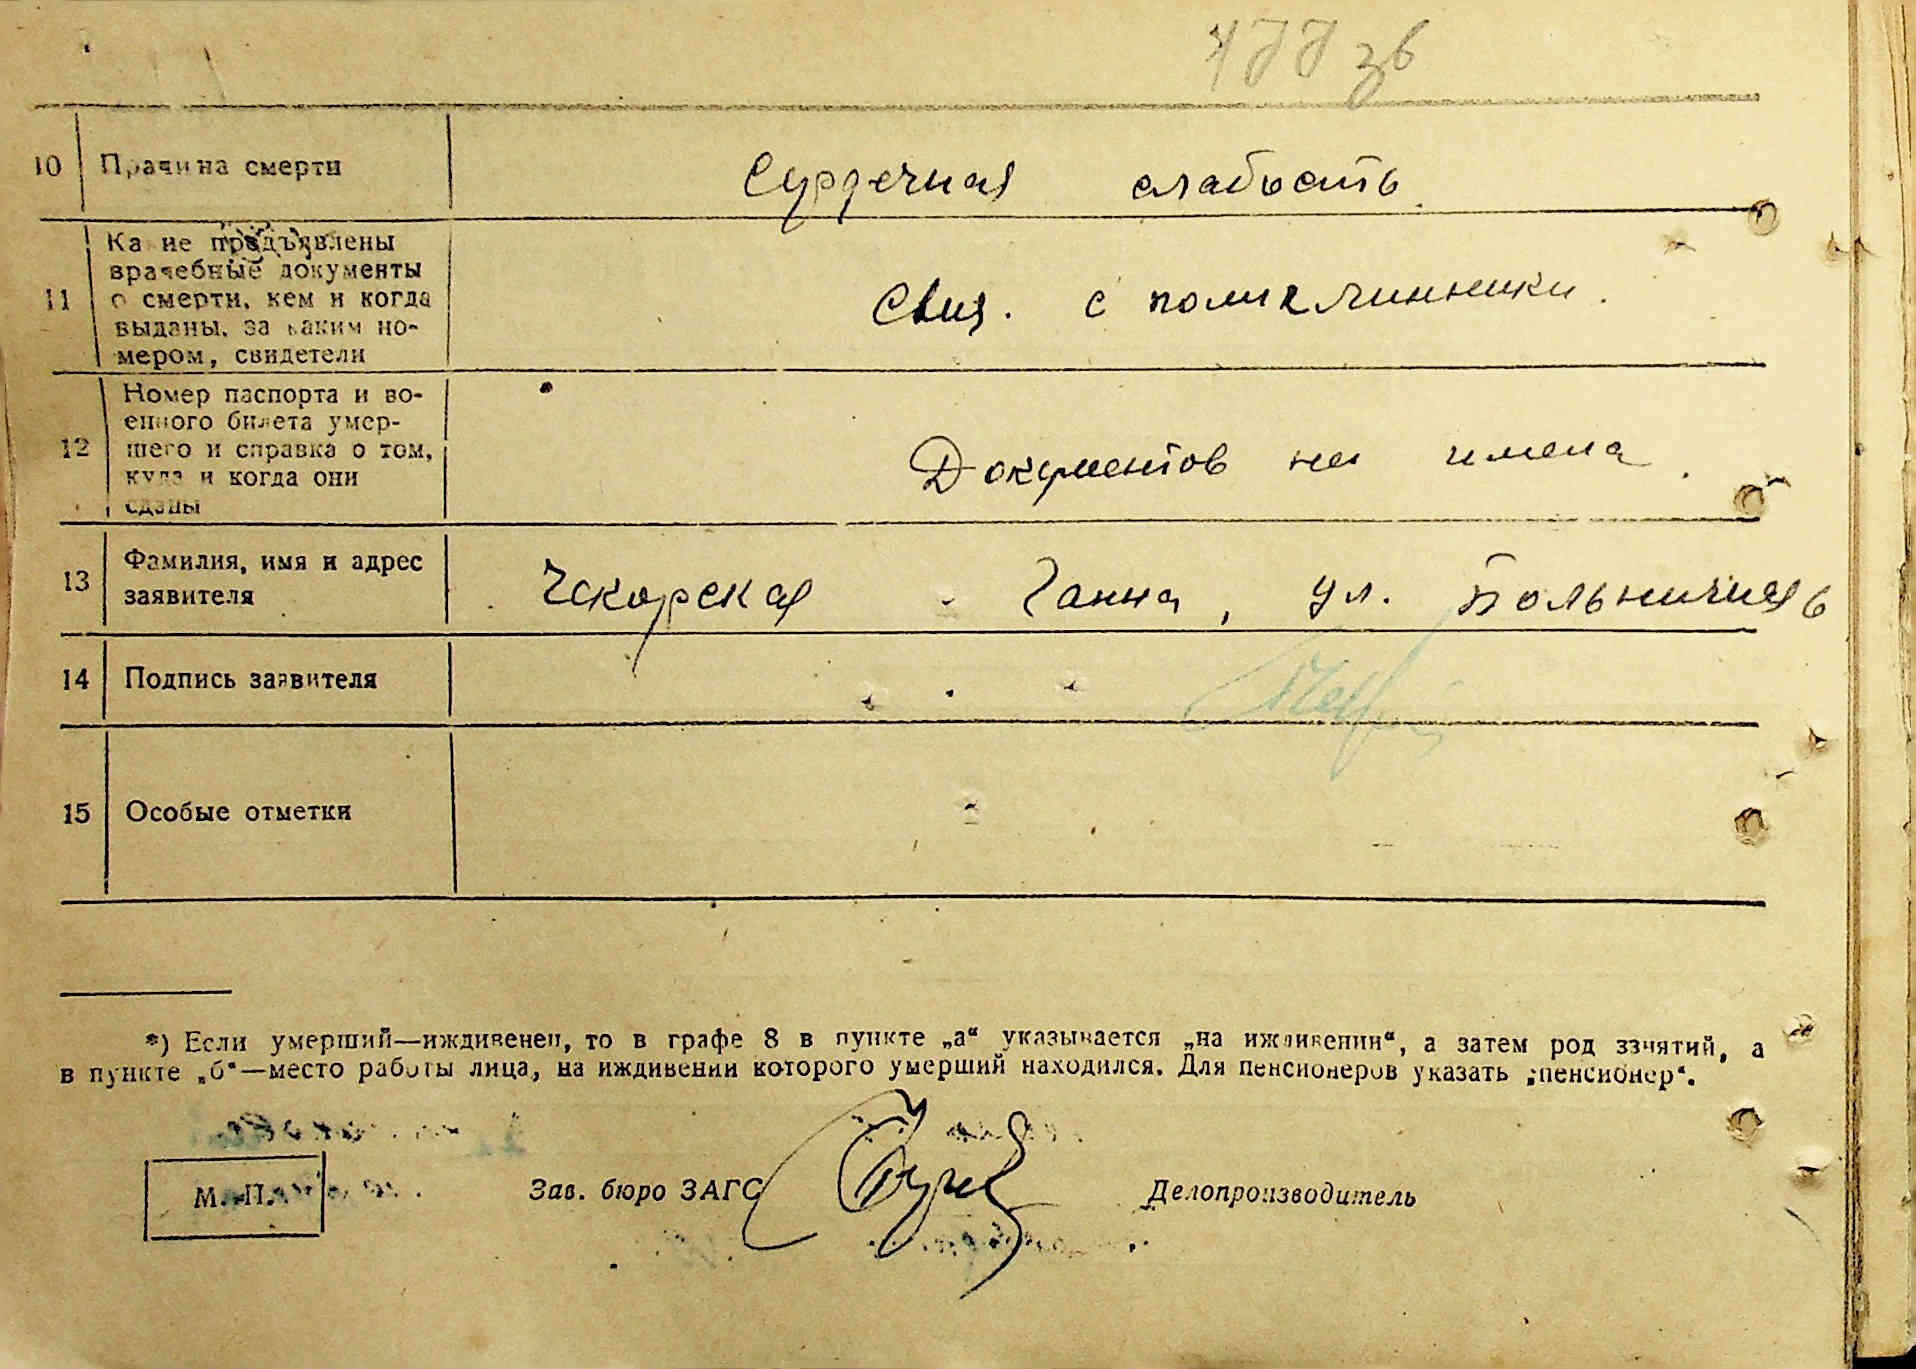 477 зв
10 Причина смерти Сурдечная слабость.
11 Какие предъявлены
врачебные документы
о смерти, кем и когда
выданы, за каким но-
мером, свидетели
с поликлинники.
12 Номер паспорта и во-
енного билета умер-
шего и справка о том,
куда и когда они
сданы
Документов не имела.
13 Фамилия, имя и адрес
заявителя
Ганна, ул. Больничная 6
14 Подпись заявителя
15 Особые отметки
*) Если умерший—иждивенец, то в графе 8 в пункте „а“ указывается „на иждивении“, а затем род занятий, а
в пункте „б“—место работы лица, на иждивении которого умерший находился. Для пенсионеров указать „пенсионер“.
М. П. Зав. бюро ЗАГС Делопроизводитель